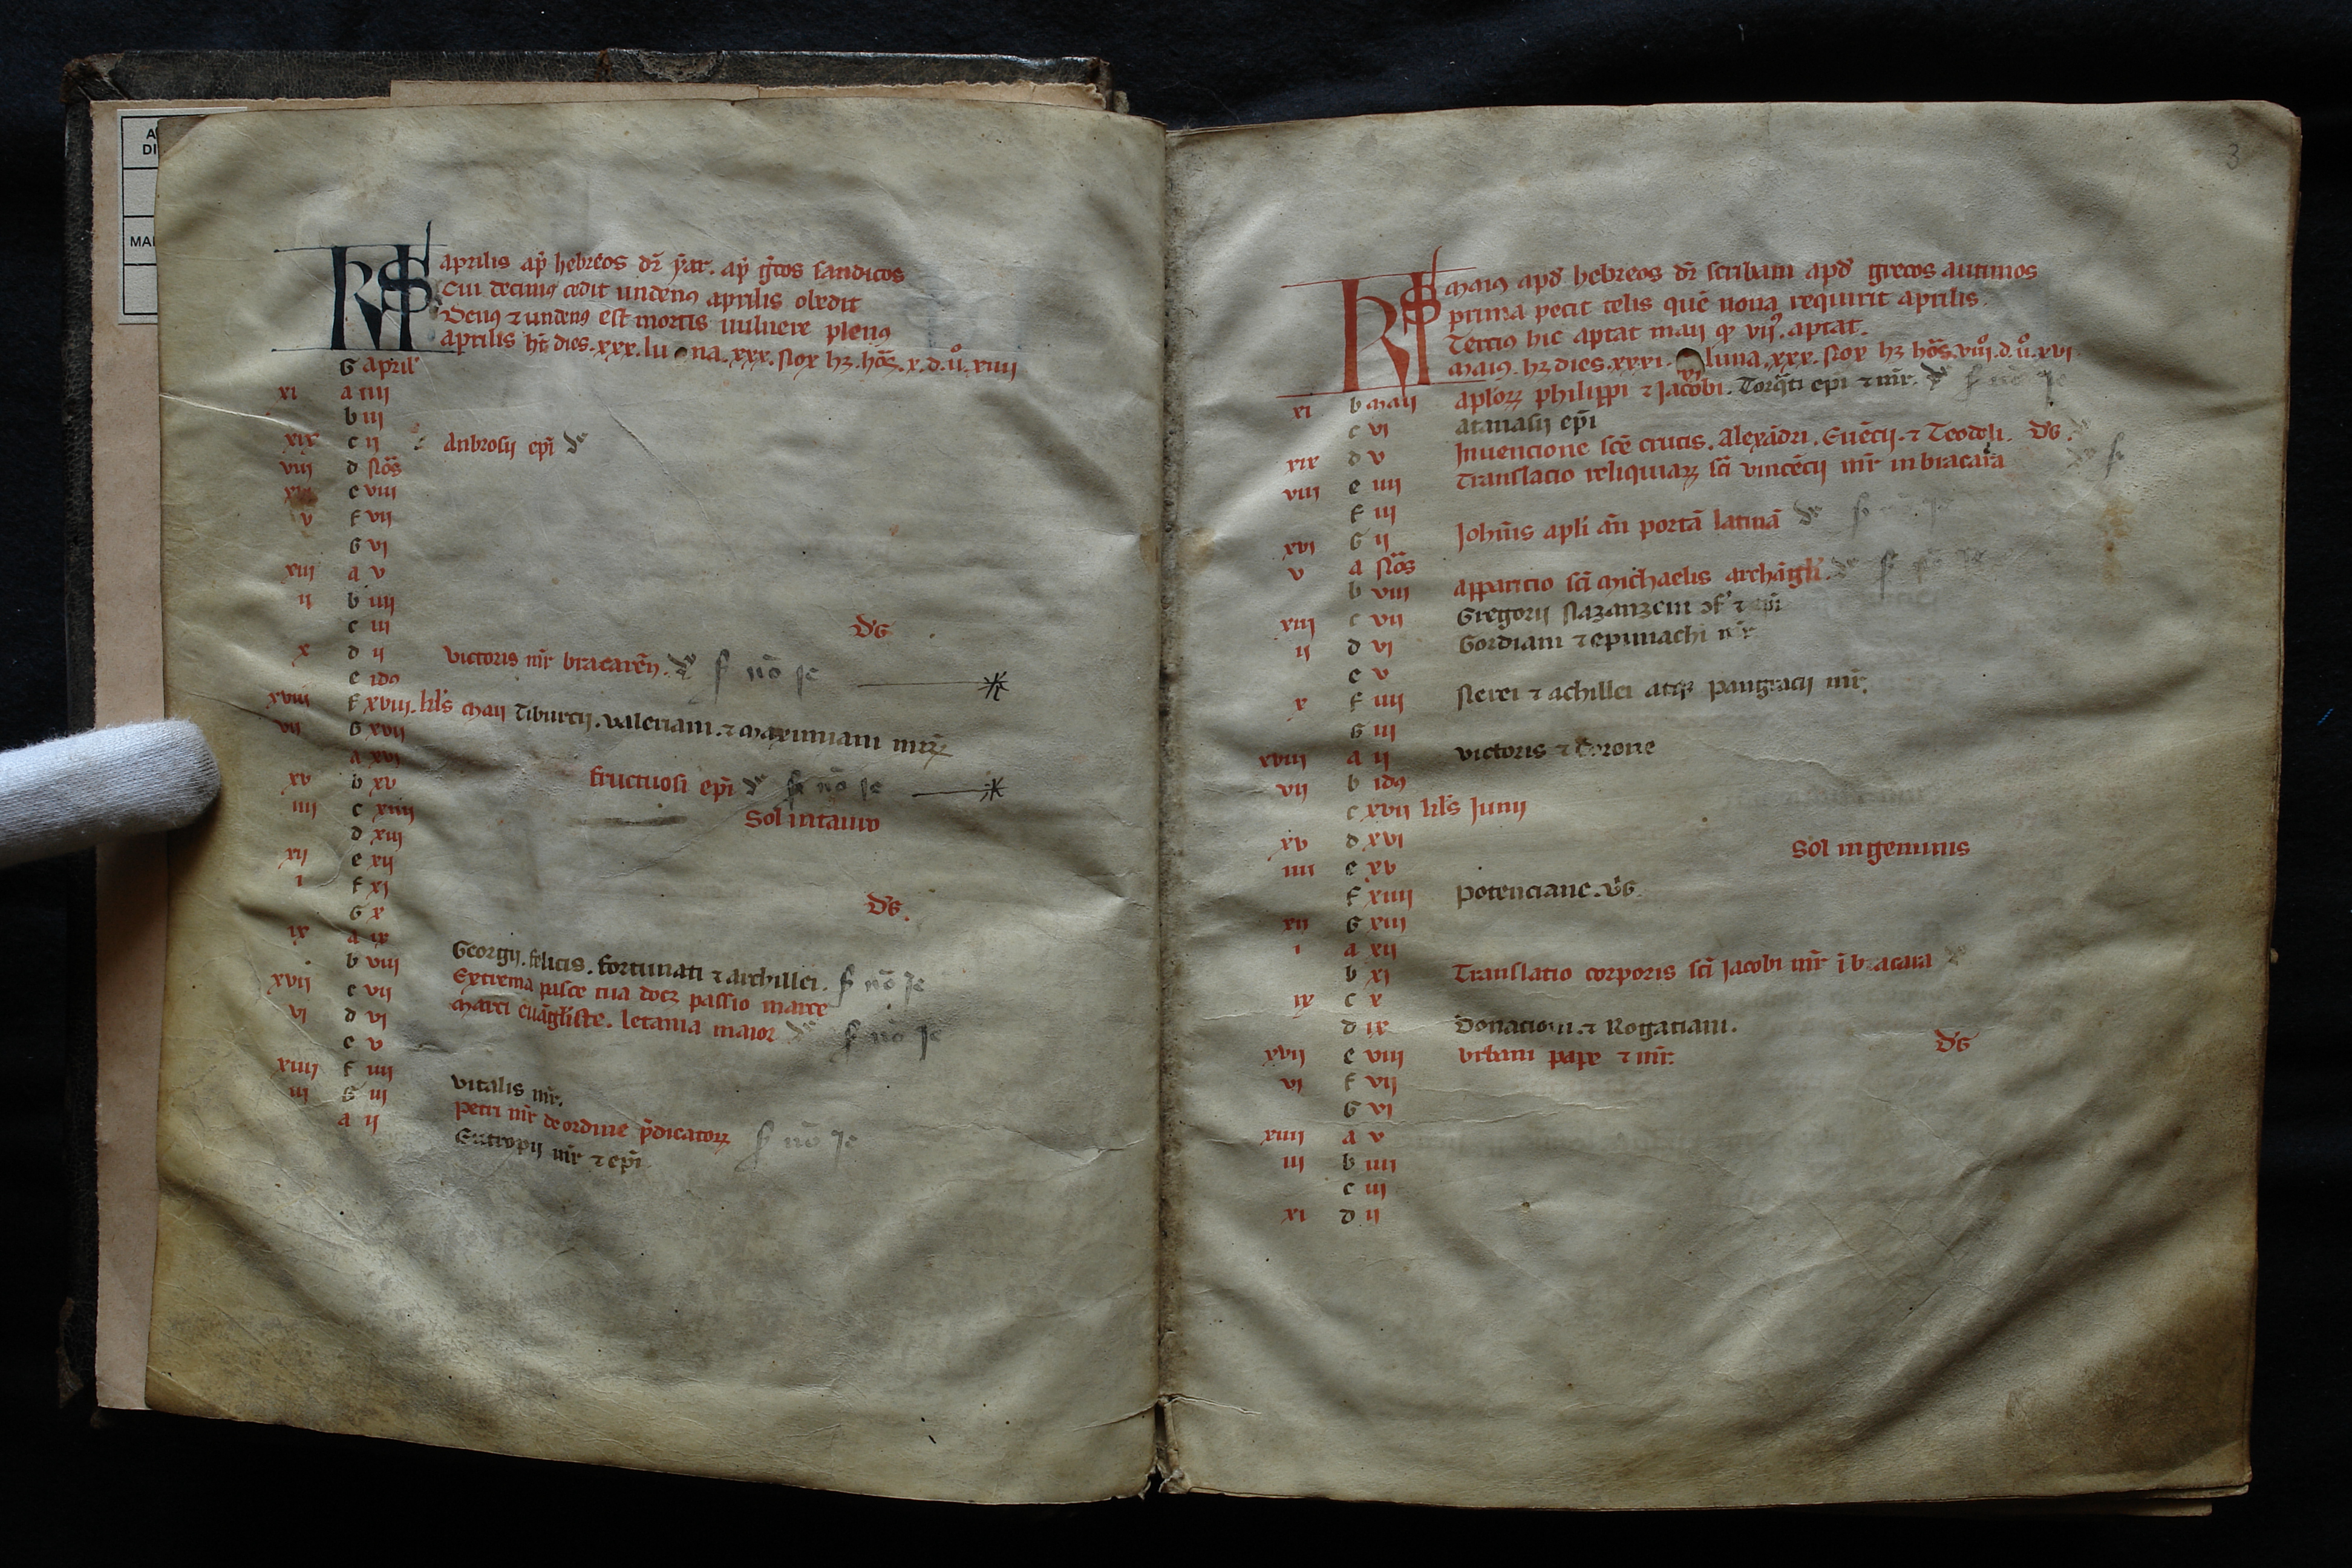 A
DI
MA
KLS aprilis ap̄ hebreos dr̄ ẏar. ap̄ gͨos sandicos
Cui decimꝰ cedit undenꝰ aprilis obedit
Denꝰ ⁊ undenꝰ est mortis uulnere plenꝰ
aprilis ht̄ dies. xxx. luna. xxx. Nox hꝫ. hōꝝ. x. d. ů. xiiii
G april'
xi a iiii
b iii
xix c ii Anbrosij ep̄i
viii d Nōs
xvi e viii
v f vii
G vi
xiii a v
ii b iiii
c iii d'G
x d ii victoris mr̄ bracareñ. f nō se
e idꝰ
xviii f xviii. kl's maij Tiburcij. valeriani. ⁊ maximiani mr̄ꝝ
vii G xvii
a xvi
xv b xv fructuosi ep̄i f nō se
iiii c xiiii Sol in tauro
d xiii
xii e xii
i f xi
G x d'G.
ix a ix
b viii Georgij. felicis. fortunati ⁊ archillei. f nō se
xvii c vii Extrema pisce tua docꝫ passio marce
vi d vi marci euāgl'iste. letania maior f nō se
e v
xiiii f iiii vitalis mr̄.
iii G iii petri mr̄ de ordine p̄dicatoꝝ f nō se
a ii Eutropij mr̄ ⁊ ep̄i
3
KLS maiꝰ apđ hebreos dr̄ scribain apđ grecos autimos
prima pecit telis quē nona requirit aprilis
Terciꝰ hic aptat maij ꝙ vii9. aptat.
maiꝰ. hꝫ dies. xxxi. luna. xxx. Nox hꝫ hōꝝ. viii. d. ů. xvi
xi b maij aplōꝝ philippi ⁊ Jacobi. Torq̄ti epi ⁊ mr̄. f nō se
c vi atanasij ep̄i
xix d v Inuencione sc̄e crucis. Alexādri. Euēcij. ⁊ Teodoli. d'G.
viii e iiii Translacio reliquiaꝝ sc̄i vincēcij mr̄ in bracara
f iii
xvi G ii Johīs apl'i añ portā latinā
v a Nōs
b viii apparicio sc̄i michaelis archāgl'i.
xiii c vii Gregorij Nazanzeni ɔf' ⁊ ep̄i
ii d vi Gordiani ⁊ epimachi mr̄
e v
x f iiii Nerei ⁊ achillei atqꝫ pangracij mr̄.
G iii
xviii a ii victoris ⁊ Corone
vii b idꝰ
c xvii kl's Junij
xv d xvi Sol in geminis
iiii e xv
f xiiii potenciane. v'G.
xii G xiii
i a xii
b xi Translatio corporis sc̄i Jacobi mr̄ ī bracara
ix c x
d ix Donaciani. ⁊ Rogaciani. d'G
xvii e viii vrbani pape ⁊ mr̄.
vi f vii
G vi
xiiii a v
iii b iiii
c iii
xi d ii